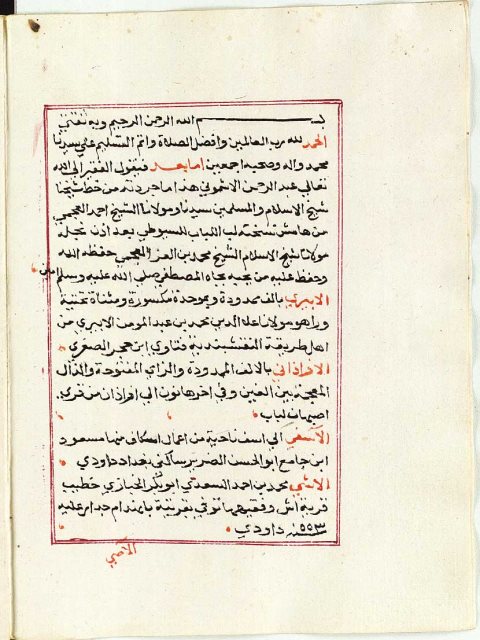 بسم الله الرحمن الرحيم وبه ثقتي
الحمد لله رب العالمين وافضل الصلاة واتم التسليم على سيدنا
محمد واله وصحبه اجمعين اما بعد فيقول الفقير الى الله
تعالى عبد الرحمن الاشموني هذا ما جردته من خط شيخنا
شيخ الاسلام والمسلمين سيدنا ومولانا الشيخ احمد العجمي
من هامش نسخته لب اللباب للسيوطي بعد اذن نجله
مولانا شيخ الاسلام الشيخ محمد بن العز العجمي حفظه الله
وحفظ عليه من يحبه بجاه المصطفى صلى الله عليه وسلم امين
الابيري بالف ممدودة وبموحدة مكسورة ومثناة تحتية
وراء هو مولانا علاء الدين محمد بن عبد المومن الابيري من
اهل طريقة النقشبندية فتاوى ابن حجر الصغرى
الاذاذاني بالالف الممدودة والزاي المفتوحة والذال
المعجمة بين الفين وفي اخرها نون الى ازاذان من قرى
اصبهان لباب
الاسفي الى اسف ناحية من اعمال اسكاف منها مسعود
ابن جامع ابو الحسن الضرير ساكن بغداد داودي
الاشي محمد بن احمد السعدي ابو بكر الخبازي خطيب
قرية اش وفقيهها توفي بقرية بانهدام جدار عليه
سنة ٥٥٣ داودي
الآصي